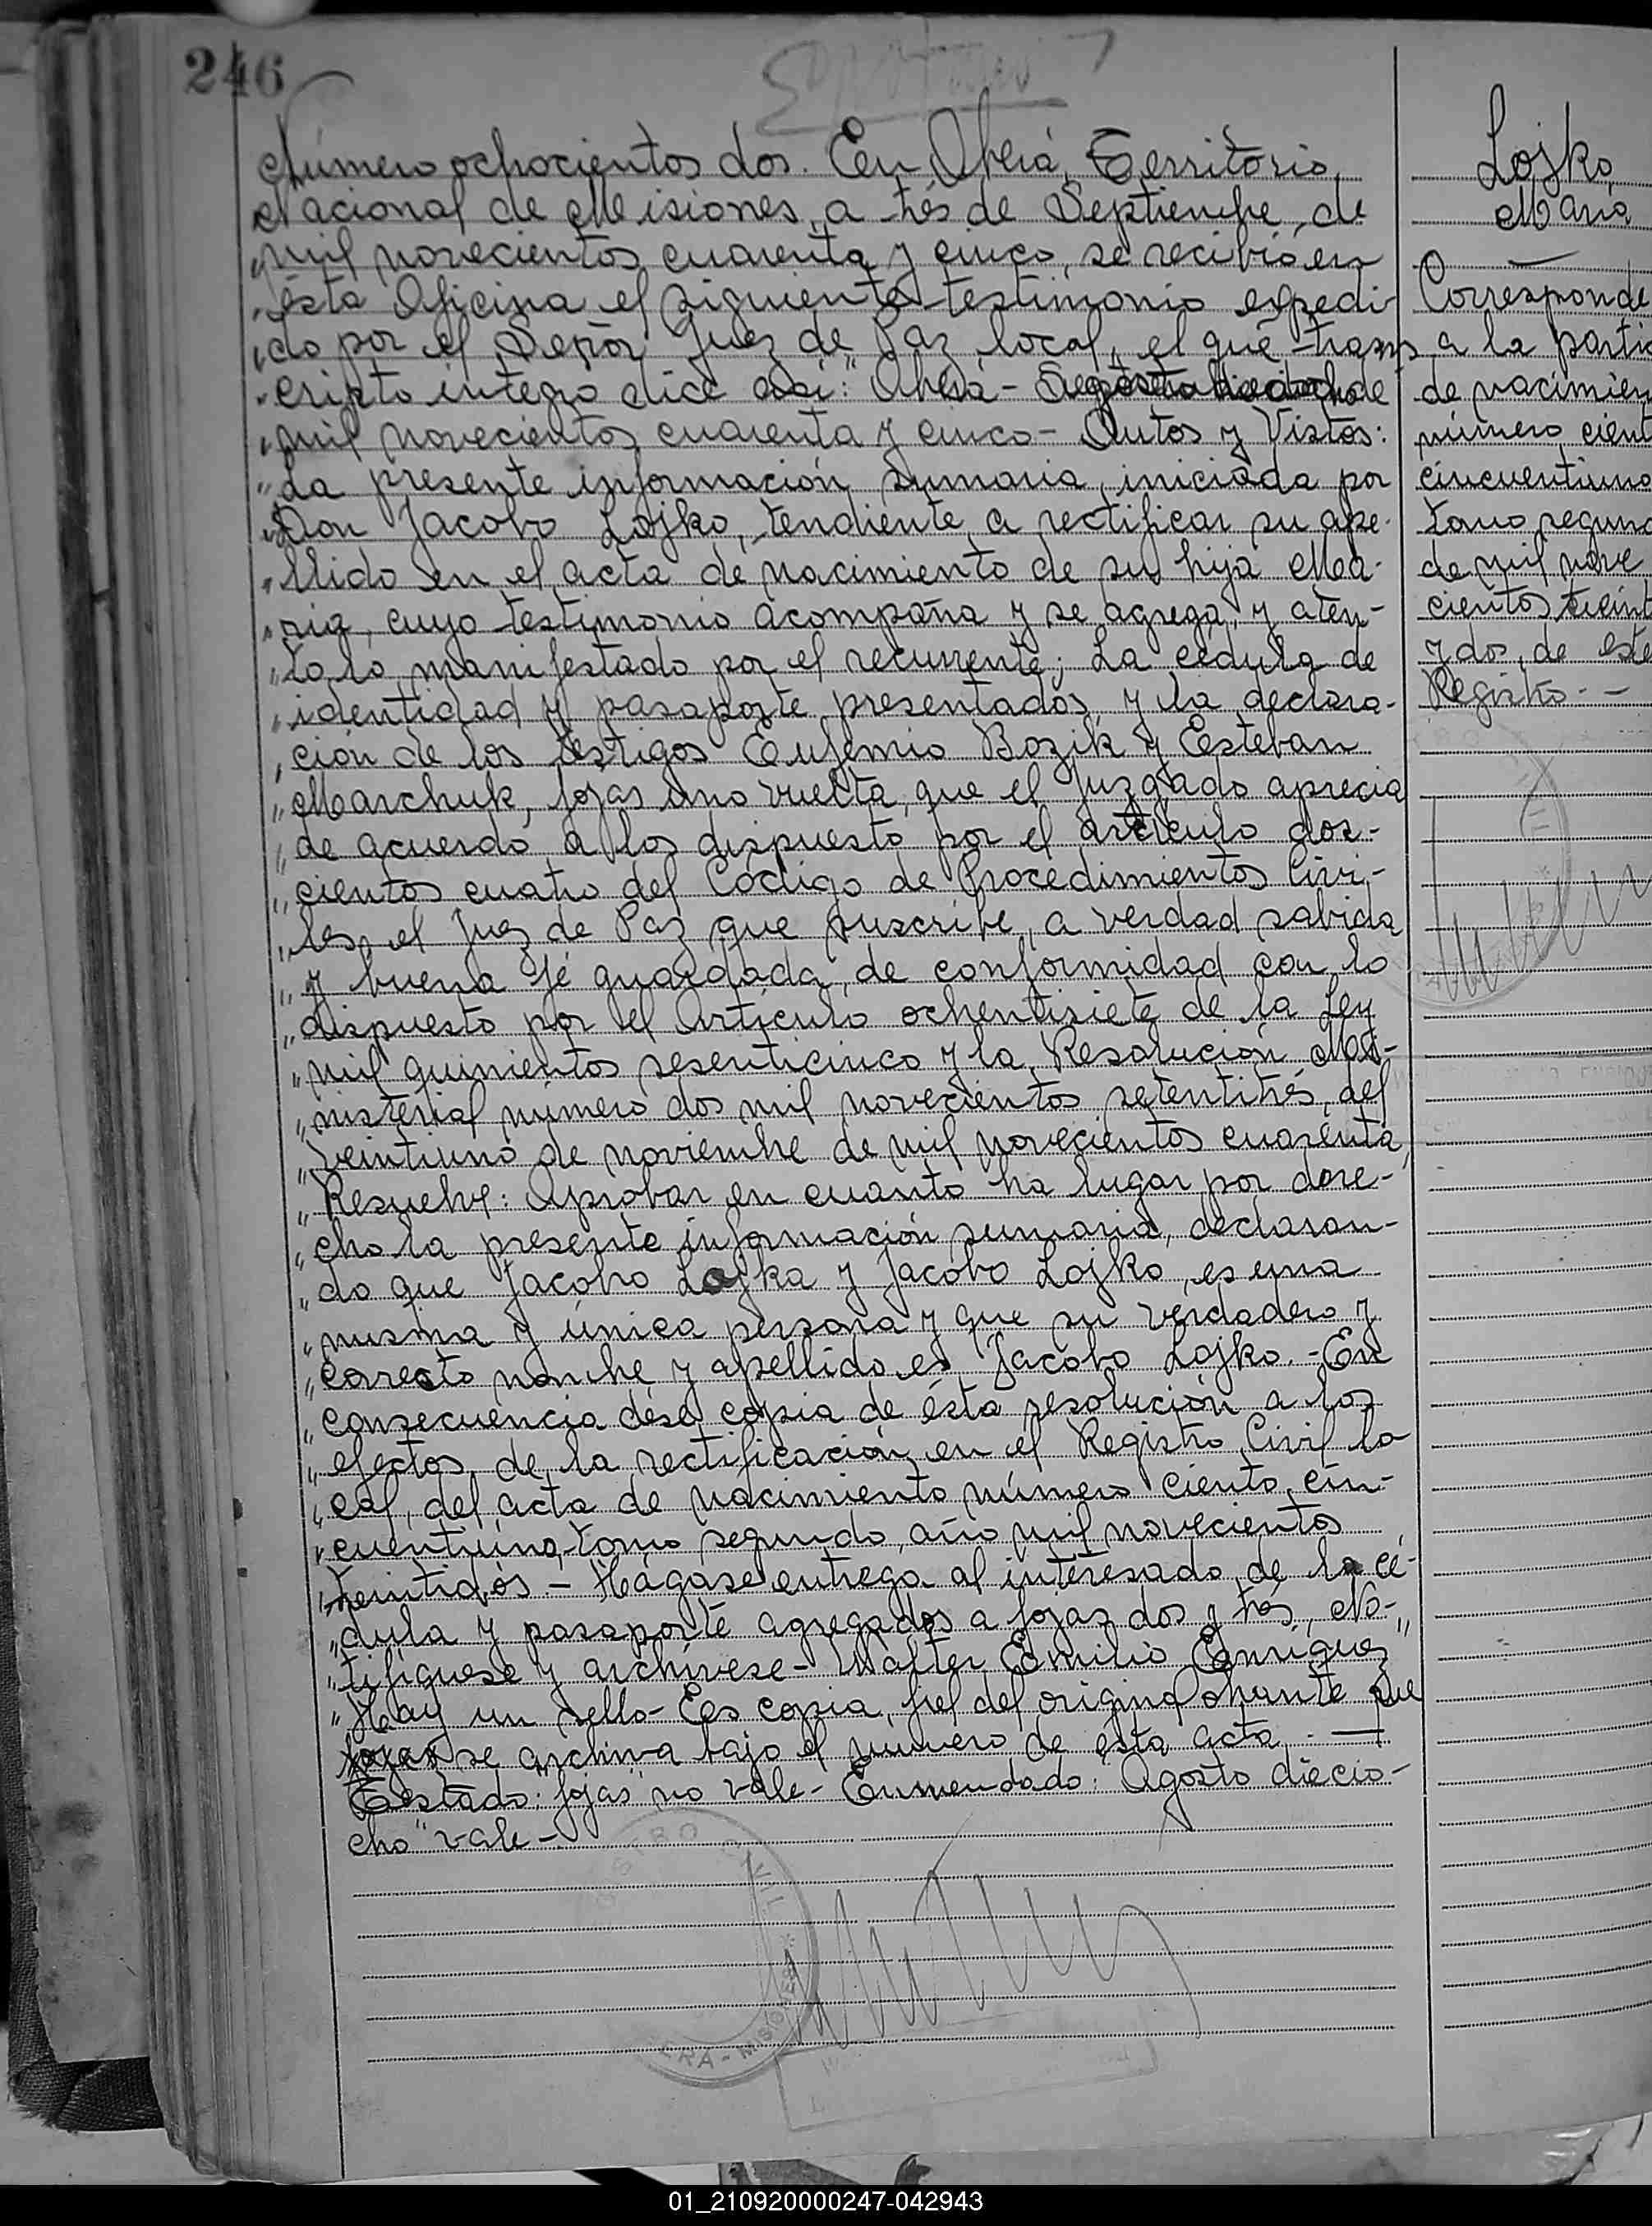 246
Número ochocientos dos. En Oberá, Territorio
Nacional de Misiones, a tres de Septiembre, de
mil novecientos cuarenta y cinco, se recibió en
ésta Oficina el siguiente testimonio expedi-
"do por el Señor Juez de Paz local, el que trans
"cripto íntegro dice así: "Oberá - Agosto dieciocho de
"mil novecientos cuarenta y cinco - Autos y Vistos:
"La presente información sumaria, iniciada por
"Don Jacobo Lojko, tendiente a rectificar su ape-
"llido en el acta de nacimiento de su hija Ma-
"ria, cuyo testimonio acompaña y se agrega, y aten-
"to lo manifestado por el recurrente; La cédula de
"identidad y pasaporte presentados, y la declara-
"ción de los testigos Eufemio Bozik y Esteban
"Marchuk, fojas uno vuelta, que el Juzgado aprecia
"de acuerdo a los dispuesto por el artículo dos-
"cientos cuatro del Código de Procedimientos Civi-
"les, el Juez de Paz que suscribe, a verdad sabida
"y buena fé guardada, de conformidad con lo
"dispuesto por el Artículo ochentisiete de la Ley
"mil quinientos sesenticinco y la Resolución Mi-
"nisterial número dos mil novecientos setentitrés, del
"veintiuno de noviembre de mil novecientos cuarenta,
"Resuelve: Aprobar en cuanto ha lugar por dere-
"cho la presente información sumaria, declaran-
"do que Jacobo Lojka y Jacobo Lojko, es una
"misma y única persona y que su verdadero y
"correcto nombre y apellido es Jacobo Lojko. - En
"consecuencia dése copia de ésta resolución a los
"efectos de la rectificación en el Registro Civil lo
"cal, del acta de nacimiento número ciento cin-
"cuentiuno, tomo segundo, año mil novecientos
"treintidós - Hágase entrega al interesado de la cé-
"dula y pasaporte agregados a fojas dos y tres, No-
"tifíquese y archívese - Walter Emilio Enriquez"
"Hay un sello - Es copia fiel del original obrante que
fojas se archiva bajo el número de ésta acta. -
Testado: "fojas" no vale - Enmendado: "Agosto diecio-
cho" vale -
Lojko,
Maria
Corresponde
a la parti
de nacimien
número cient
cincuentiuno
tomo segund
de mil nove
cientos treint
y dos, de este
Registro. -
01_210920000247-042943